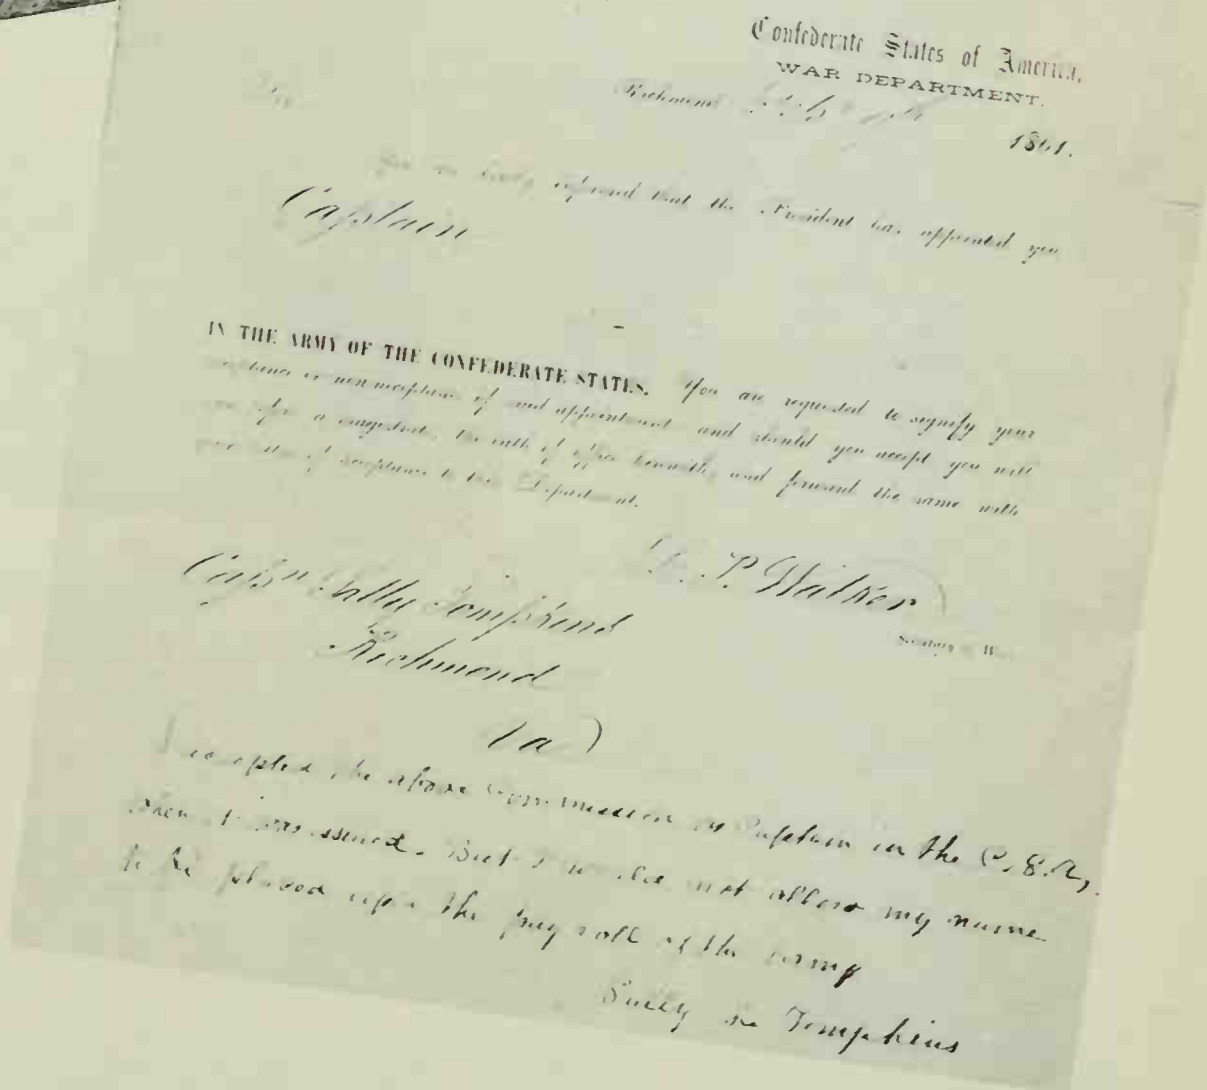 Confederate States of America,
WAR DEPARTMENT.
Richmond 1861.
Sir
You are hereby informed that the President has appointed you
Captain
IN THE ARMY OF THE CONFEDERATE STATES. You are requested to signify your
acceptance or non-acceptance of said appointment and should you accept you will
a magistrate, the oath of office herewith, and forward the same with
your letter of acceptance to this Department.
L. P. Walker
Secretary of War
Capn Sally Tompkins
Richmond
(a)
I accepted the above commission as Captain in the C. S. A.,
when it was issued. But I would not allow my name
to be placed upon the pay roll of the army
Sally L. Tompkins